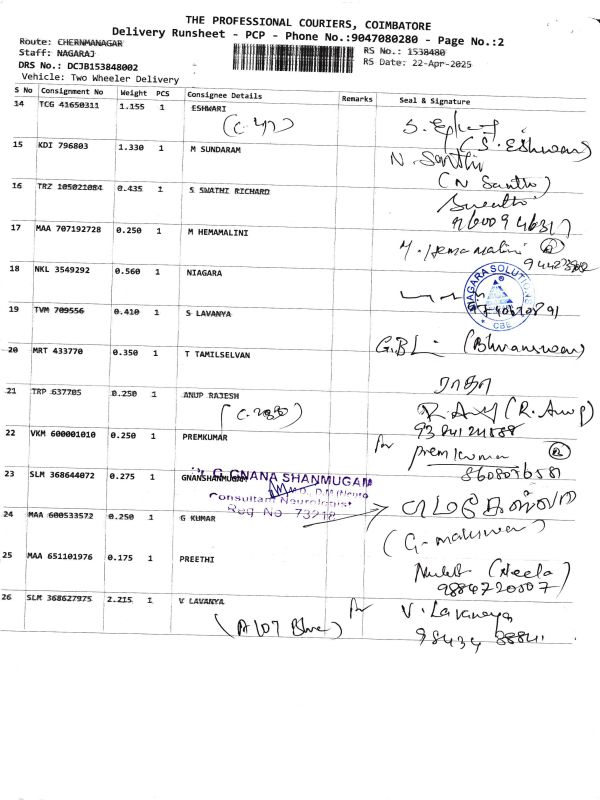 THE PROFESSIONAL COURIERS, COIMBATORE
Delivery Runsheet - PCP - Phone No.:9047080280 - Page No.:2
Route: CHERNMANAGAR
RS No.: 1538480
Staff: NAGARAJ
RS Date: 22-Apr-2025
DRS No.: DCJB153848002
Vehicle: Two Wheeler Delivery
S No Consignment No Weight PCS Consignee Details Remarks Seal & Signature
14 TCG 41650311 1.155 1 ESHWARI
(S. Eshwari)
15 KDI 796803 1.330 1 M SUNDARAM N. Santhi
(N Santhi)
16 TRZ 105021084 0.435 1 S SWATHI RICHARD
9600946317
17 MAA 707192728 0.250 1 M HEMAMALINI M. Hemamalini
18 NKL 3549292 0.560 1 NIAGARA
NIAGARA SOLUTIONS
CBE
19 TVM 709556 0.410 1 S LAVANYA
20 MRT 433770 0.350 1 T TAMILSELVAN
G.BL (Bhvaneswari)
ராதா
21 TRP 637705 0.250 1 ANUP RAJESH
R.A (R. Anup)
22 VKM 600001010 0.250 1 PREMKUMAR for premkumar
23 SLM 368644072 0.275 1 GNANSHANMUGAM
G GNANA SHANMUGAM
Consultant Neurologist
Reg No 73218
24 MAA 600533572 0.250 1 G KUMAR
25 MAA 651101976 0.175 1 PREETHI
(Neela)
9884720507
26 SLM 368627975 2.215 1 V LAVANYA for V. Lavanaya
(A107 Bhve)